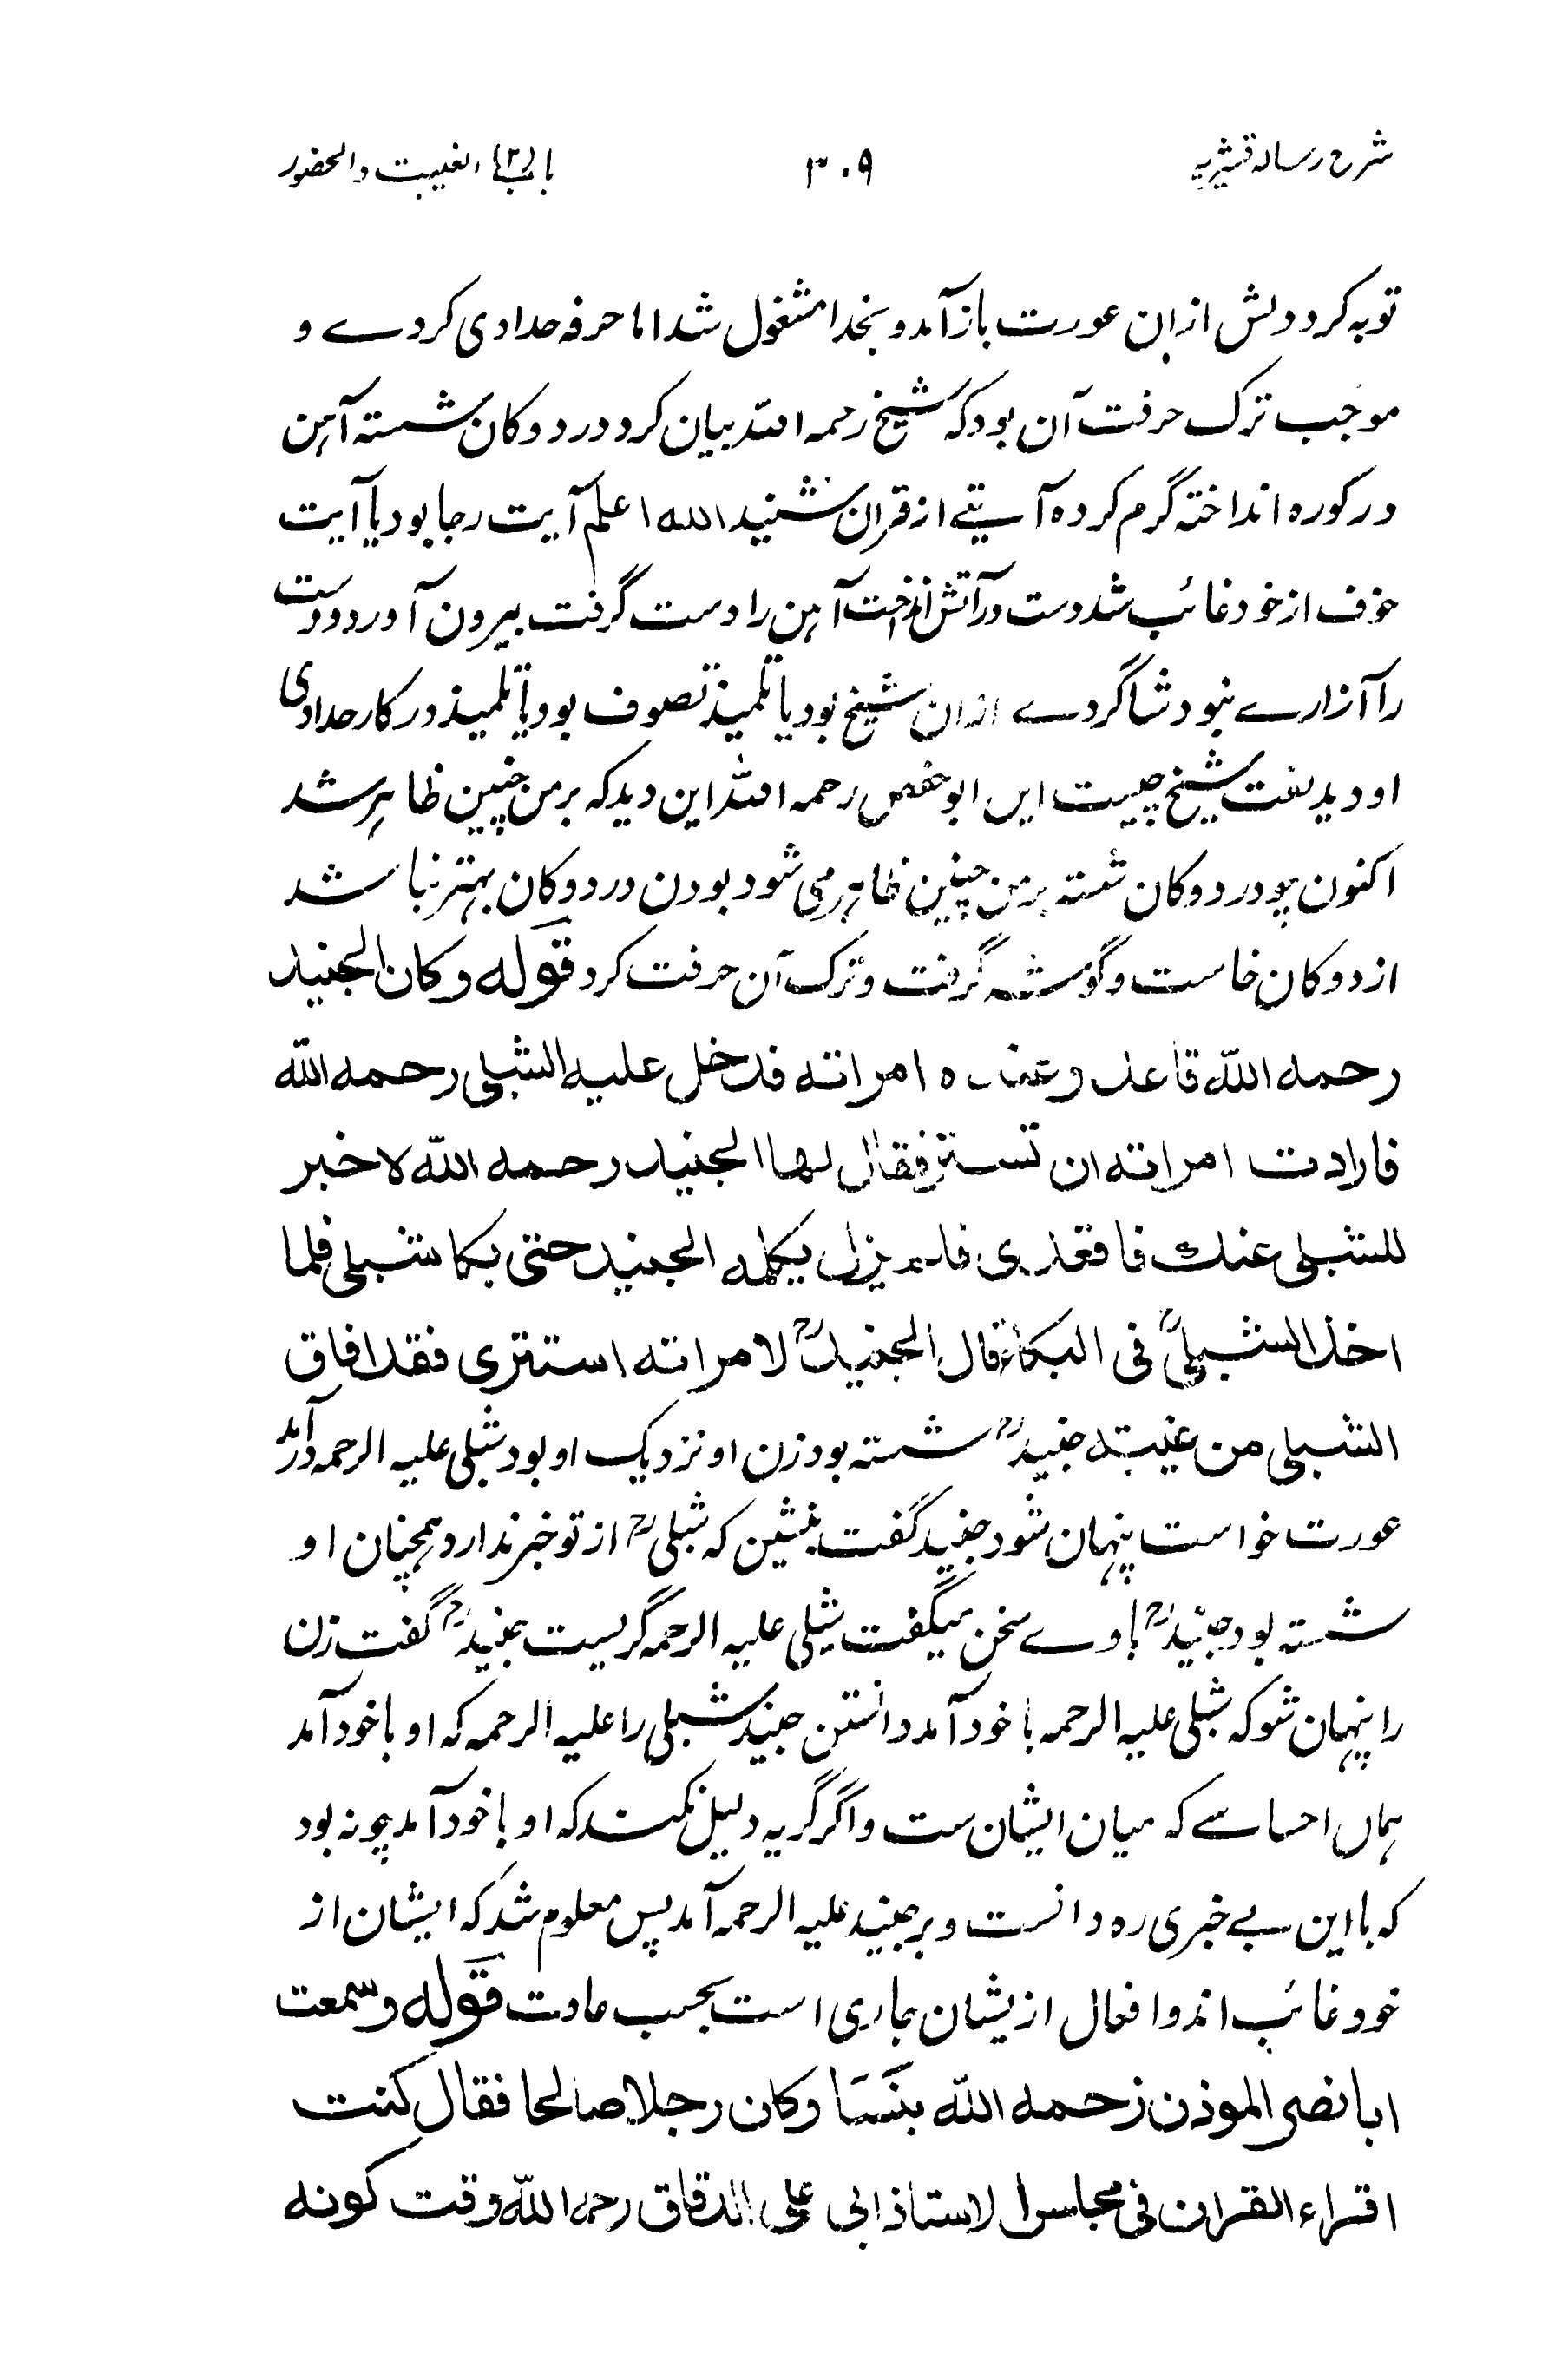 شرح رسالہ قشیریہ
۳۰۹
باب الغیبت والحضور
توبہ کرد دلش ازان عورت باز آمد و بخدا مشغول شد اما حرفہ حدادی کردے و
موجب ترک حرفت آن بود کہ شیخ رحمہ اللہ بیان کرد در دوکان شستہ آہن
در کورہ انداختہ گرم کردہ آیتے از قران شنید اللہ اعلم آیت رجا بود یا آیت
خوف از خود غائب شد دست در آتش انداخت آہن را دست گرفت بیرون آورد و دست
را آزارے نبود شاگردے ازان شیخ بود یا تلمیذ تصوف بود یا تلمیذ در کار حدادی
او دید گفت شیخ چیست ایں ابو حفص رحمہ اللہ این دید کہ بر من چنین ظاہر شد
اکنون چو در دوکان شستہ بر من چنین ظاہر می شود بودن در دوکان بہتر نباشد
از دوکان خاست و گوشہ گرفت و ترک آن حرفت کرد قولہ وکان الجنید
رحمہ اللہ قاعد وعندہ امراتہ فدخل علیہ الشبلی رحمہ اللہ
فارادت امراتہ ان تستتر فقال لہا الجنید رحمہ اللہ لا خبر
للشبلی عنك فاقعدی فلم یزل یکلمہ الجنید حتی بکا شبلی فلما
اخذ الشبلیؒ فی البکاء قال الجنیدؒ لامراتہ استتری فقد افاق
الشبلی من غیبتہ جنیدؒ شستہ بود زن او نزدیک او بود شبلی علیہ الرحمہ در آمد
عورت خواست پنہان شود جنید گفت بنشین کہ شبلیؒ از تو خبر ندارد ہمچنان او
شستہ بود جنیدؒ با وے سخن میگفت شبلی علیہ الرحمہ گریست جنیدؒ گفت زن
را پنہان شو کہ شبلی علیہ الرحمہ با خود آمد دانستن جنید شبلی را علیہ الرحمہ کہ او با خود آمد
ہماں احساسے کہ میان ایشان ست و اگر گریہ دلیل نکنند کہ او با خود آمد چونہ بود
کہ با این بے خبری رہ دانست و بر جنید علیہ الرحمہ آمد پس معلوم شد کہ ایشان از
خود غائب اند و افعال ازیشان جاری است بحسب عادت قولہ وسمعت
ابا نصر الموذن رحمہ اللہ بنسا وکان رجلا صالحا فقال کنت
اقراء القران فی مجلس الاستاذ ابی علی الدقاق رحمہ اللہ وقت کونہ